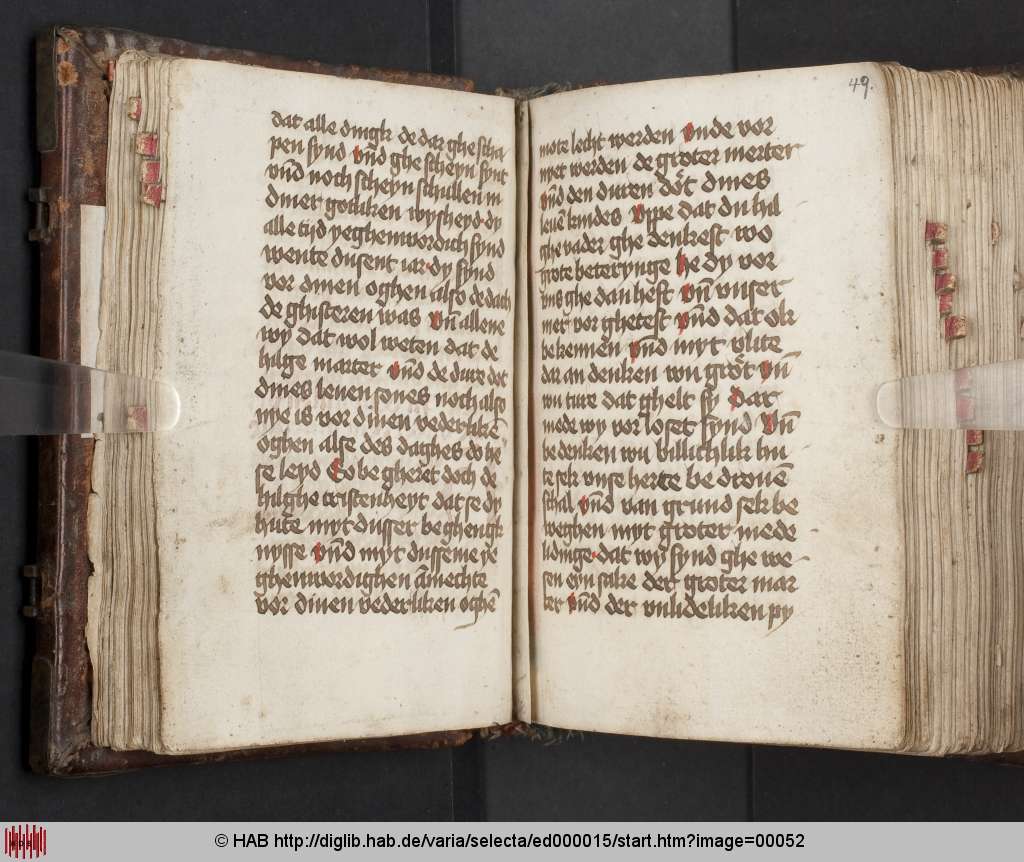 dat alle dingk de dar ghe scha
pen synd vnd ghe scheyn synt
vnd noch scheyn schullen in
diner gotliken wysheyd dy
alle tijd yeghenwordich synd
wente dusent iar dy synd
vor dinen oghen also de dach
de ghisteren was vn̄ allene
wy dat wol weten dat de
hilge marter vnd de dure dot
dines leuen sones noch also
nye is vor dinen vederlikē
oghen alse des daghes do he
se leyd So be gheret doch de
hilghe cristenheyt dat se dy
hute myt dusser beghengk
nysse vnd myt dusseme ye
ghenwordighen āmechte
vor dinen vederliken oghē
49.
mote lecht werden vnde vor
nyet werden de groter merter
vnd den duren dot dines
leuē kindes vppe dat du hil
ghe vader ghe denkest wo
grote beterynge he dy vor
vns ghe dan heft vn̄ vnser
nict vor ghetest vnd dat ok
be kennen vnd myt vlite
dar an denken wu grot vn̄
wu ture dat ghelt sy dar
mede wy vor loset synd vn̄
be denken wu billichlik hu
te sek vnse herte be drouē
schal vnd van grund sek be
weghen myt groter mede
lidinge dat wy synd ghe we
sen eyn sake der groter mar
ter vnd der vnlideliken py
© HAB http://diglib.hab.de/varia/selecta/ed000015/start.htm?image=00052